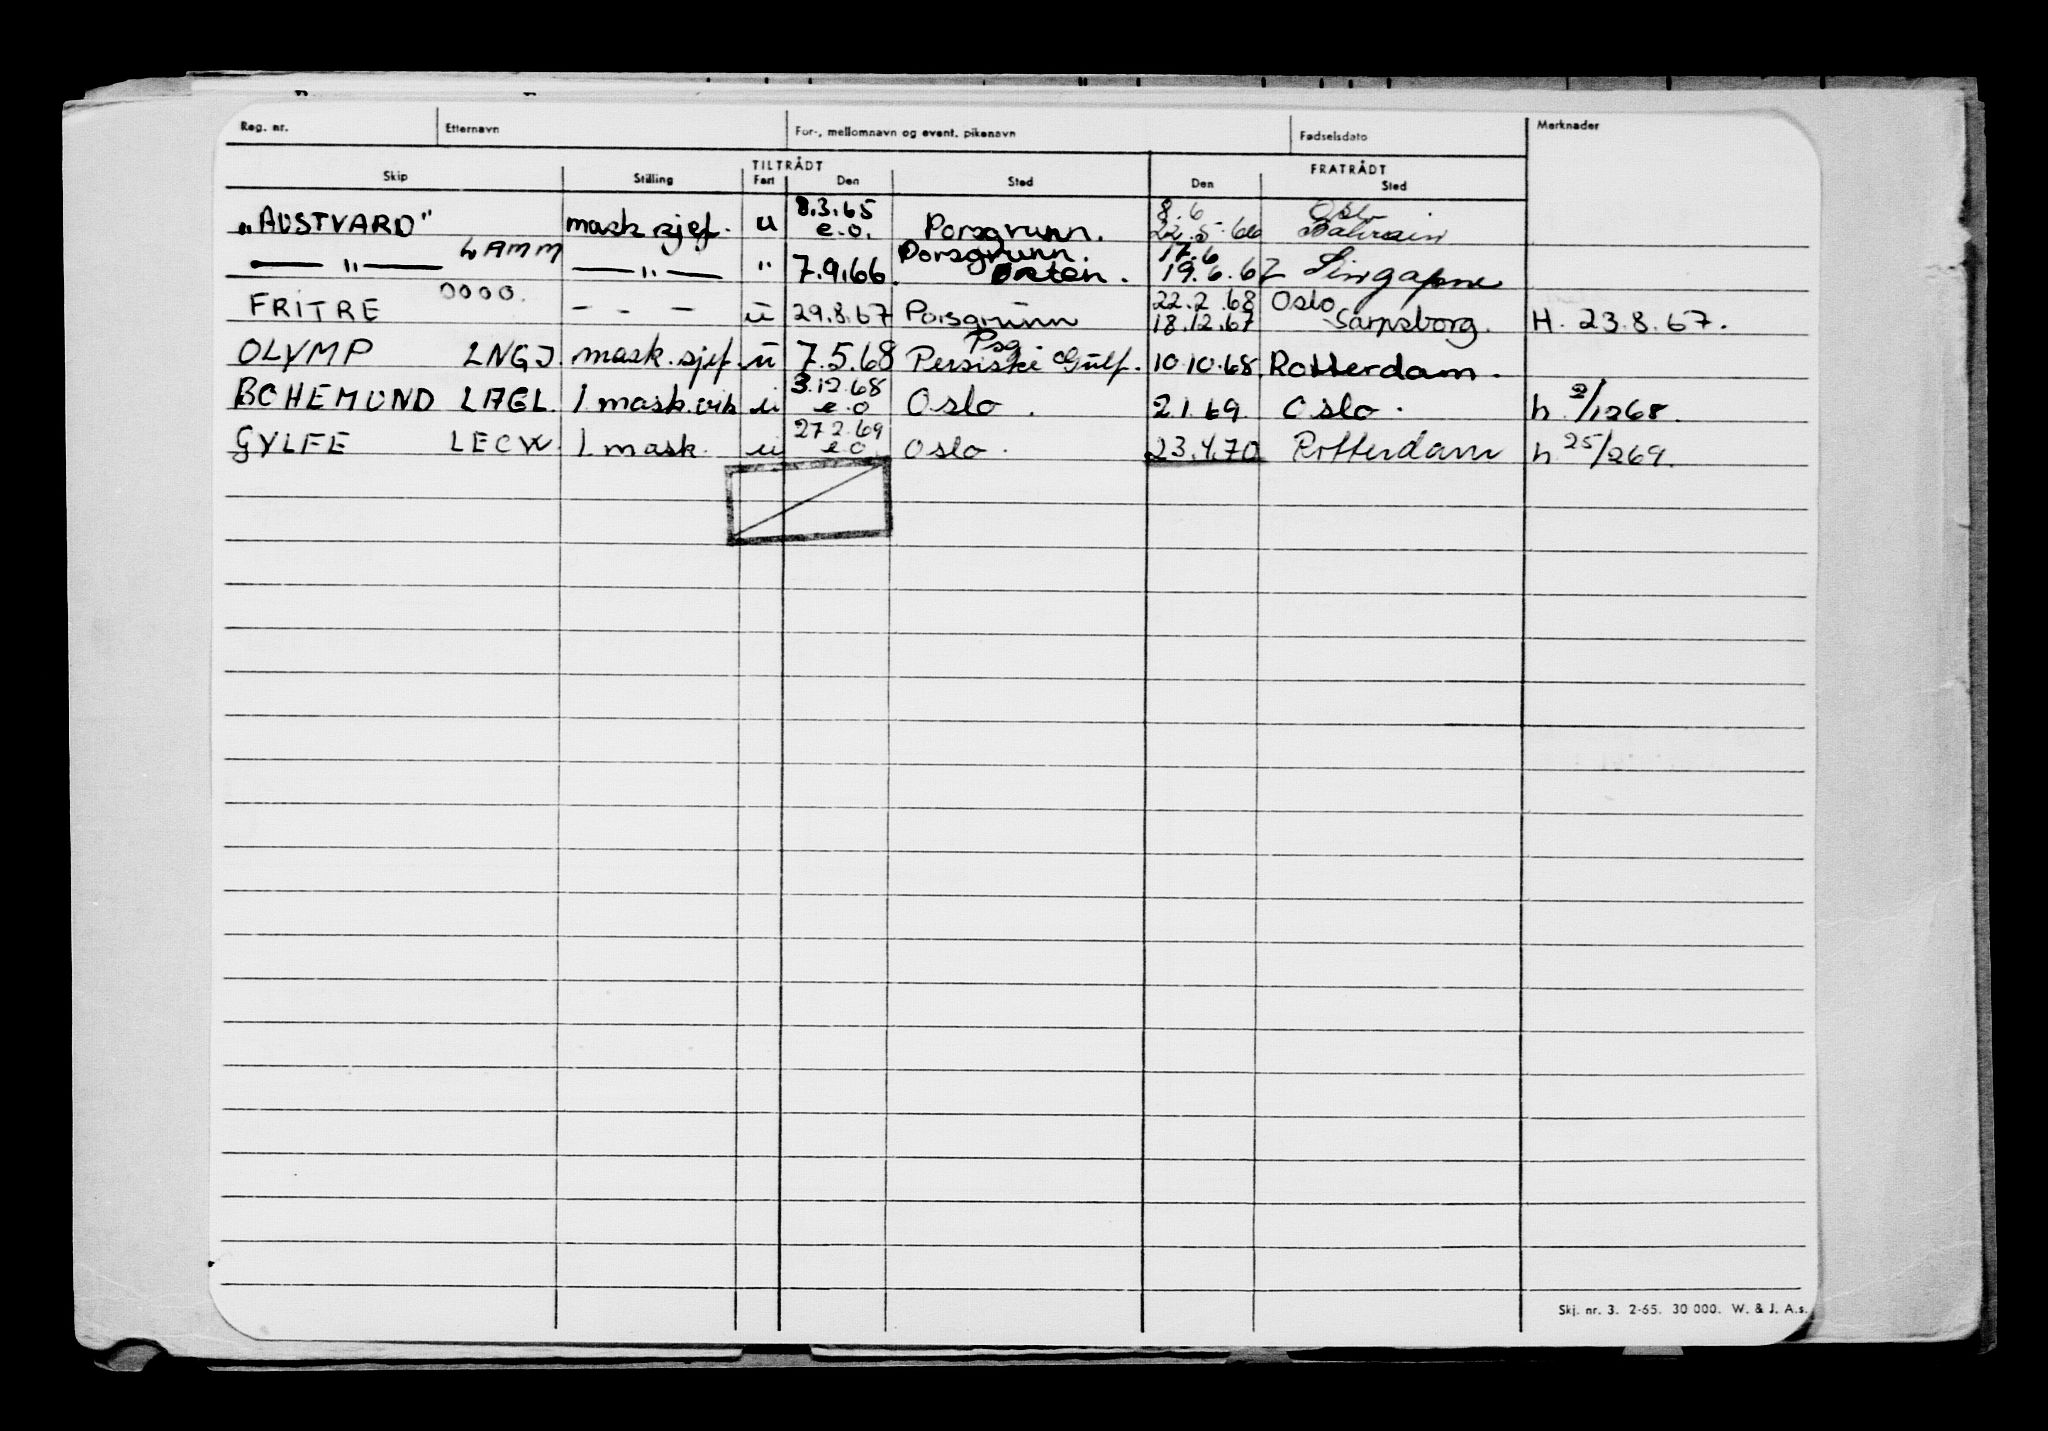 Reg. nr. Etternavn For-, mellomnavn og event. pikenavn Fødselsdato Merknader
TILTRÅDT FRATRÅDT
Skip Stilling Fart Den Sted Den Sted
8.3.65 8.6 Oslo
"AUSTVARD" mask sjef. u e.o. Porsgrunn. 22.5.66 Bahrain
LAMM Porsgrunn. 17.6
— " — — " — " 7.9.66. 19.6.67 Singapore
FRITRE OOOO. - - - u 29.8.67 Porsgrunn 22.2.68 Oslo
18.12.67 Sarpsborg. H. 23.8.67.
Psg.
OLYMP LNGJ mask. sjef. u 7.5.68 Persiske Gulf. 10.10.68. Rotterdam.
3.12.68
BOHEMUND LAGL. 1 mask. vik u e.o Oslo. 2.1.69. Oslo. h. 2/1268.
27.2.69
GYLFE LECW. 1 mask. u e.o. Oslo. 23.4.70 Rotterdam h. 25/269.
Skj. nr. 3. 2-65. 30 000. W. & J. A.s.